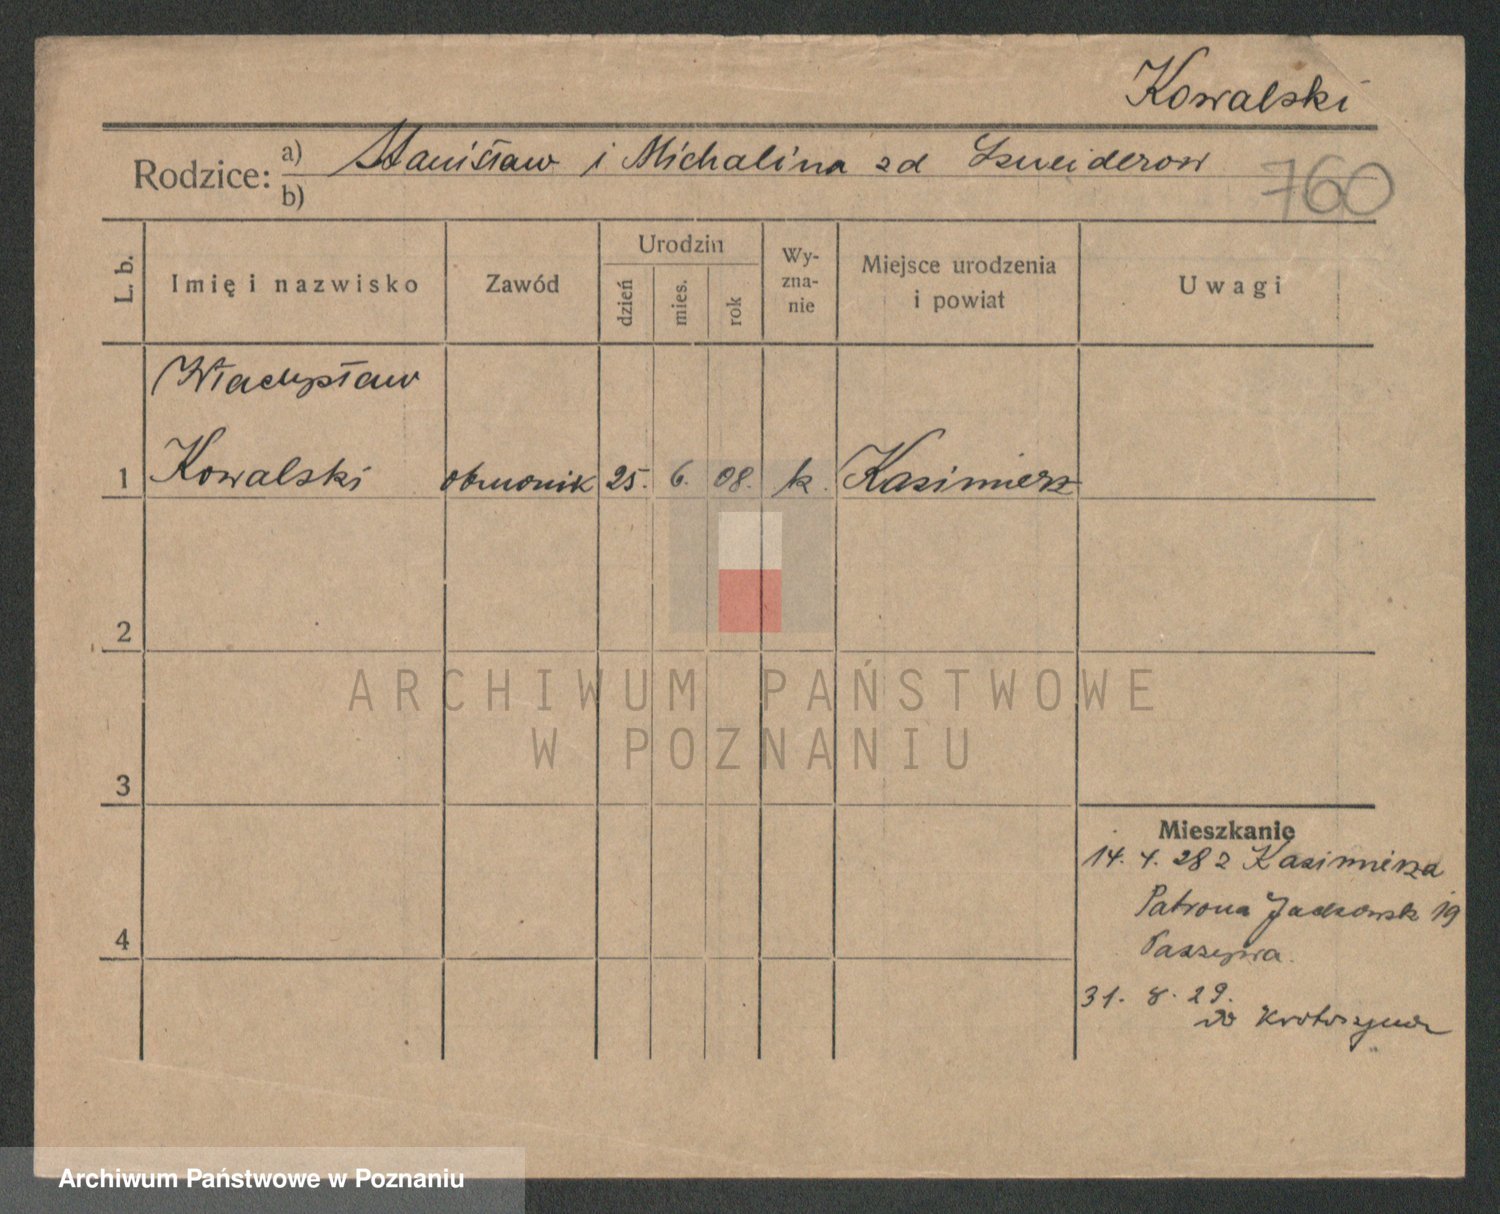 Kowalski
Rodzice: a) Stanisław i Michalina zd
b)
760
L. b.
Imię i nazwisko
Zawód
Urodzin
dzień
mies.
rok
Wy-
zna-
nie
Miejsce urodzenia
i powiat
Uwagi
Władysław
1 Kowalski 25. 6. 08. k. Kazimierz
2
3
4
Mieszkanie
14. 4. 28 z Kazimierza
Patrona 19
31. 8. 29.
do Krotoszyna
ARCHIWUM PAŃSTWOWE
W POZNANIU
Archiwum Państwowe w Poznaniu